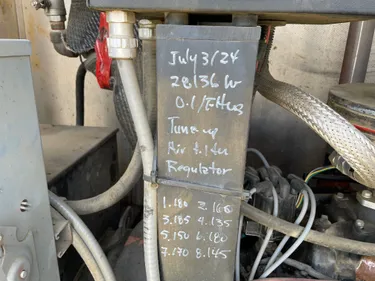 July 3/24
28/36 W
0.1/Filters
Tune up
Air filter
Regulator
1.180 2.165
3.185 4.135
5.150 6.180
7.170 8.145